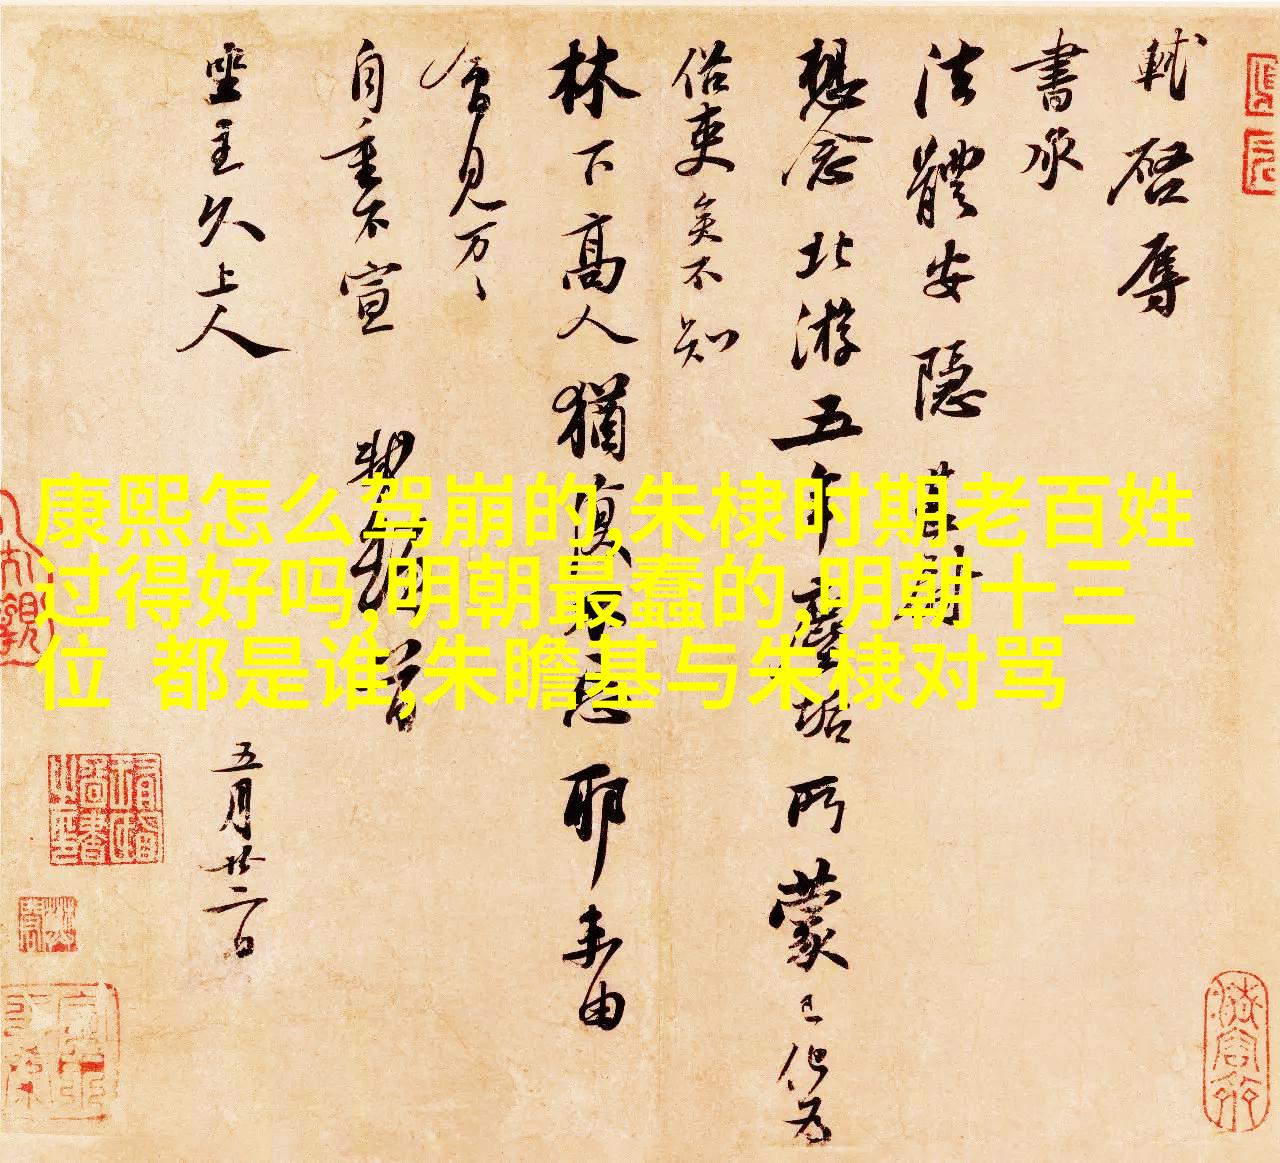 軾啓辱
書承
法體安隱甚慰
想念北游五年塵垢所蒙已化為
俗吏矣不知
林下高人猶復不忘耶未由
會見万〻
自重不宣 軾頓首
坐主久上人
五月廿二日
康熙怎么驾崩的,朱棣时期老百姓
过得好吗,明朝最蠢的,明朝十三
位 都是谁,朱瞻基与朱棣对骂